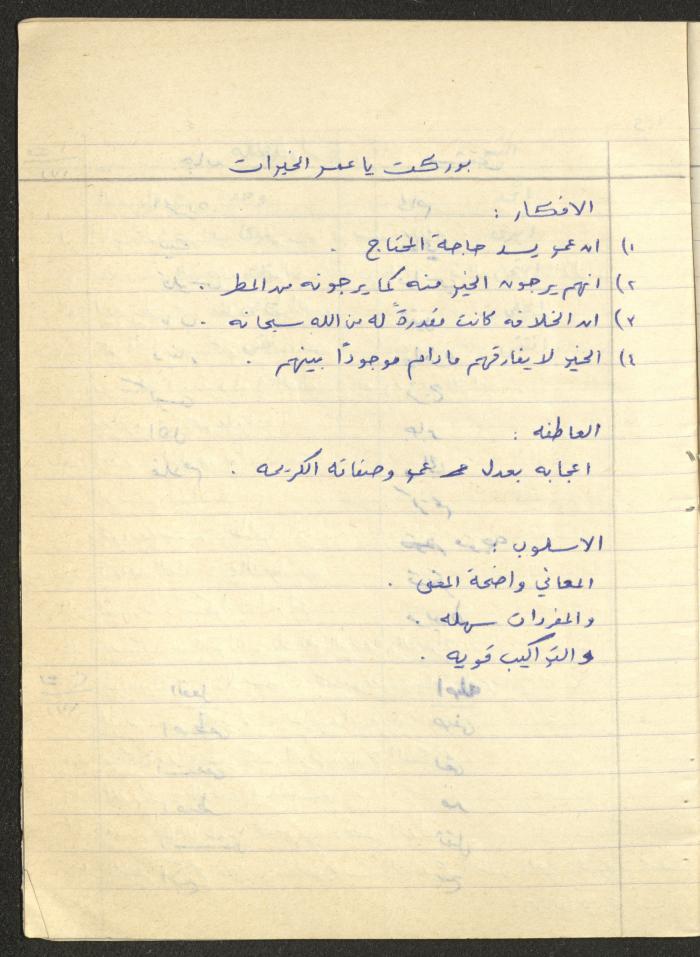 بوركت يا عمر الخيرات
الافكار :
١) ان عمر يسد حاجة المحتاج .
٢) انهم يرجون الخير منه كما يرجونه من المطر .
٣) ان الخلافه كانت مقدرةً له من الله سبحانه .
٤) الخير لا يفارقهم مادام موجودًا بينهم .
العاطفه :
اعجابه بعدل عمر وصفاته الكريمه .
الاسلوب :
المعاني واضحة
والمفردات سهله .
والتراكيب قويه .